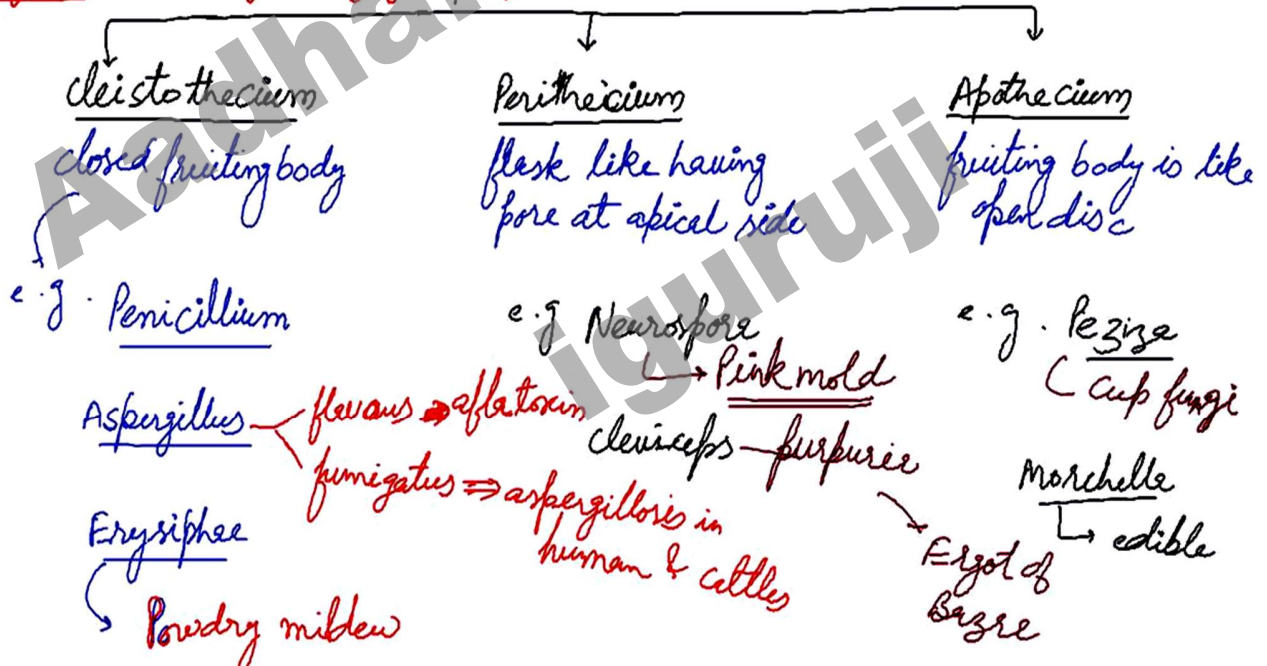 Cleistothecium
closed fruiting body
e.g. Penicillium
Aspergillus
flavous ⇒ aflatoxin
fumigatus ⇒ aspergillosis in
human & cattles
Erysiphae
Powdry mildew
Perithecium
flask like having
pore at apical side
e.g Neurospora
Pink mold
claviceps — purpurie
Ergot of
Bazre
Apothecium
fruiting body is like
open disc
e.g. Peziza
cup fungi
Morchella
edible
iguruji